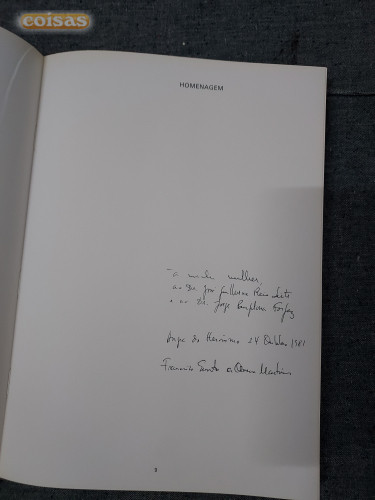 coisas
HOMENAGEM
à minha mulher,
ao Dr. José Guilherme
e ao Dr. Jorge
Angra do Heroísmo 14 Outubro 1981
Francisco de Oliveira Martins